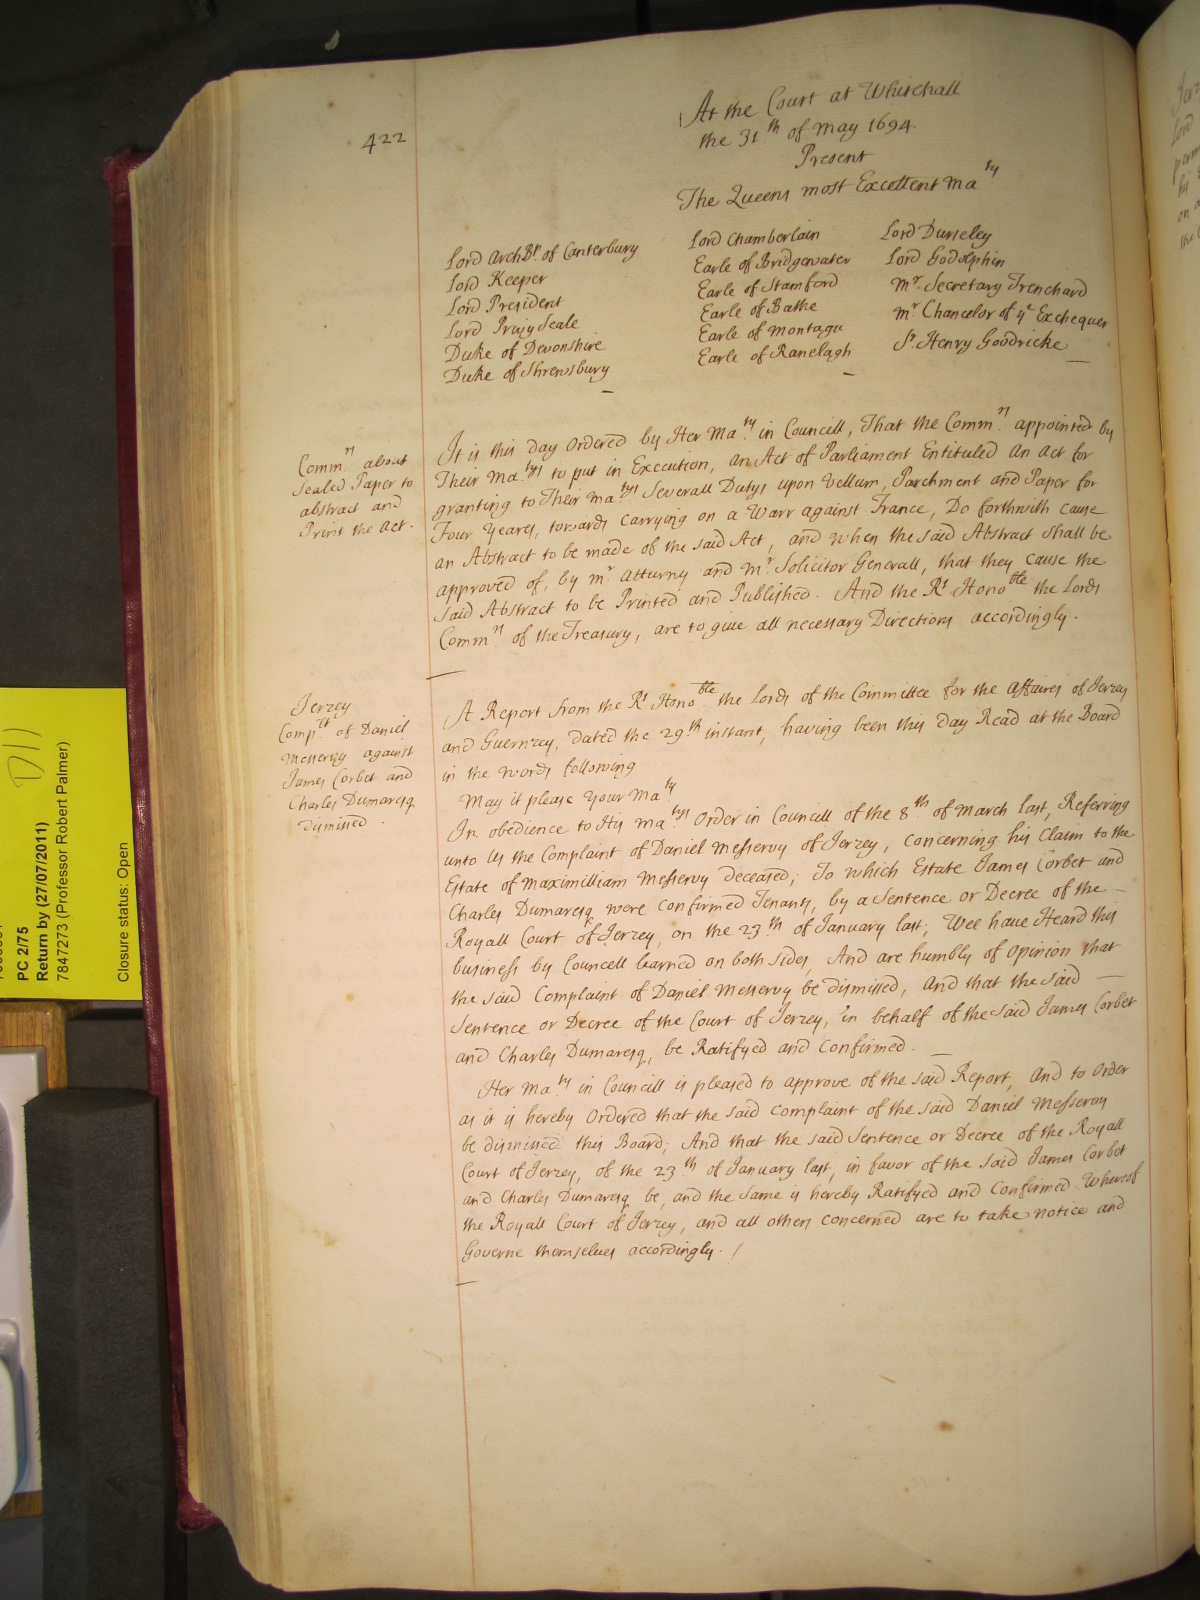 422
At the Court at Whitehall
the 31th of May 1694.
Present
The Queens most Excellent Maty
Lord ArchBp of Canterbury
Lord Keeper
Lord President
Lord Privy Seale
Duke of Devonshire
Duke of Shrewsbury
Lord Chamberlain
Earle of Bridgewater
Earle of Stamford
Earle of Bathe
Earle of Montagu
Earle of Ranelagh
Lord Dursley
Lord Godolphin
Mr. Secretary Trenchard
Mr Chancelor of ye Exchequer
Sr. Henry Goodricke
Commrs about
Sealed Paper to
abstract and
Print the Act.
It is this day Ordered by Her Maty in Councill, That the Commrs appointed by
Their Matys to put in Execution, an Act of Parliament Entituled An Act for
granting to Their Matys Severall Dutys upon Vellum, Parchment and Paper for
Four Yeares, towards Carrying on a Warr against France, Do forthwith cause
an Abstract to be made of the said Act, and when the said Abstract shall be
approved of, by Mr Atturny and Mr Solicitor Generall, that they cause the
said Abstract to be Printed and Published. And the Rt Honoble the Lords
Commrs of the Treasury, are to give all necessary Directions accordingly.
Jerzey
Complt of Daniel
Messervy against
James Corbet and
Charles Dumaresq
dismissed.
A Report from the Rt Honoble the Lords of the Committee for the Affaires of Jerzey
and Guernzey, Dated the 29th instant, having been this day Read at the Board
in the words following
May it please Your Maty
In obedience to His Matys Order in Councill of the 8th of March last, Referring
unto Us the Complaint of Daniel Messervy of Jerzey, concerning his Claim to the
Estate of Maximilliam Messervy deceased; To which Estate James Corbet and
Charles Dumaresq were confirmed Tenants, by a Sentence or Decree of the -
Royall Court of Jerzey, on the 23th of January last; Wee have Heard this
business by Councell learned on both Sides, And are humbly of Opinion that
the said Complaint of Daniel Messervy be dismissed, And that the said -
Sentence or Decree of the Court of Jerzey, in behalf of the said James Corbet
and Charles Dumaresq, be Ratifyed and Confirmed. -
Her Maty in Councill is pleased to approve of the said Report, And to Order
as it is hereby Ordered that the said Complaint of the said Daniel Messervy
be dismissed this Board; And that the said Sentence or Decree of the Royall
Court of Jerzey, of the 23th of January last, in favor of the said James Corbet
and Charles Dumaresq be, and the same is hereby Ratifyed and Confirmed Whereof
the Royall Court of Jerzey, and all others concerned are to take notice and
Governe themselves accordingly. /
D11
PC 2/75
Return by (27/07/2011)
7847273 (Professor Robert Palmer)
Closure status: Open